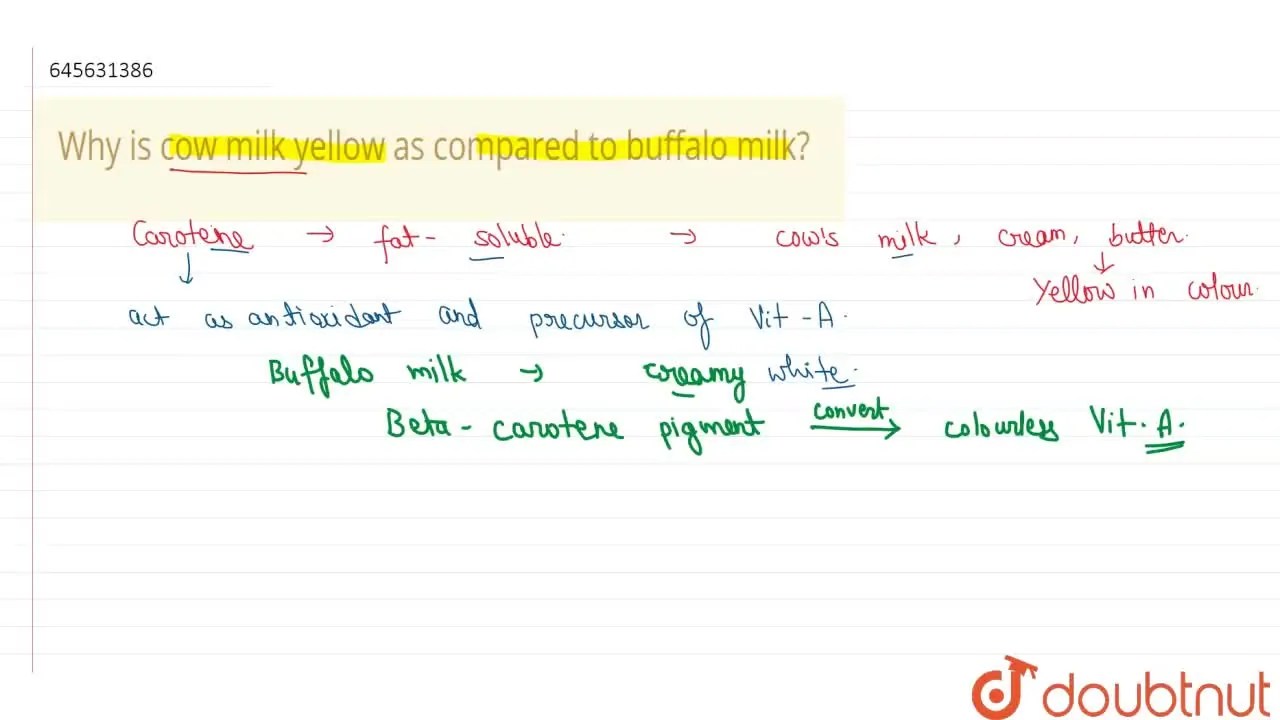 645631386
Why is cow milk yellow as compared to buffalo milk?
Carotene → fat- soluble. → cow's milk, cream, butter.
↓ ↓ Yellow in colour.
act as antioxidant and precursor of Vit-A.
Buffalo milk → creamy white.
Beta-carotene pigment convert → colourless Vit. A.
doubtnut